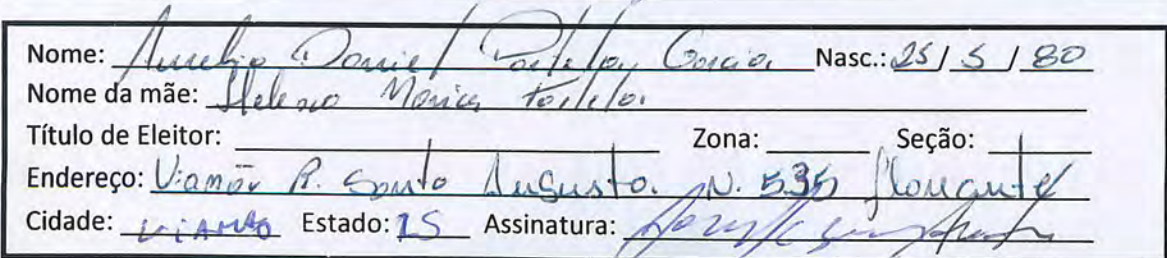 Nome: Aurelio Daniel Portela Garcia Nasc.: 25/5/80
Nome da mãe: Helena Monica Portela
Título de Eleitor: Zona: Seção:
Endereço: Viamão R. Santo Augusto. N. 535
Cidade: Viamão Estado: RS Assinatura: